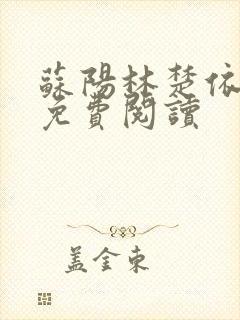 蘇陽林楚依
免費閱讀
盖金東